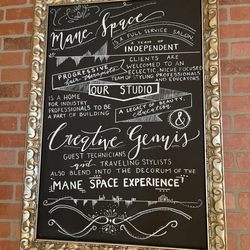 Mane Space
IS A FULL SERVICE SALON
A TEAM OF
INDEPENDENT
PROGRESSIVE
hair designers
CLIENTS ARE
WELCOMED TO AN
ECLECTIC, NICHE FOCUSED
TEAM OF STYLING PROFESSIONALS
AND EDUCATORS
OUR STUDIO
IS A HOME
FOR INDUSTRY
PROFESSIONALS TO BE
A PART OF BUILDING
A LEGACY OF BEAUTY,
&
Creative Genius
GUEST TECHNICIANS
and TRAVELING STYLISTS
ALSO BLEND INTO THE DECORUM OF THE
"MANE SPACE EXPERIENCE"